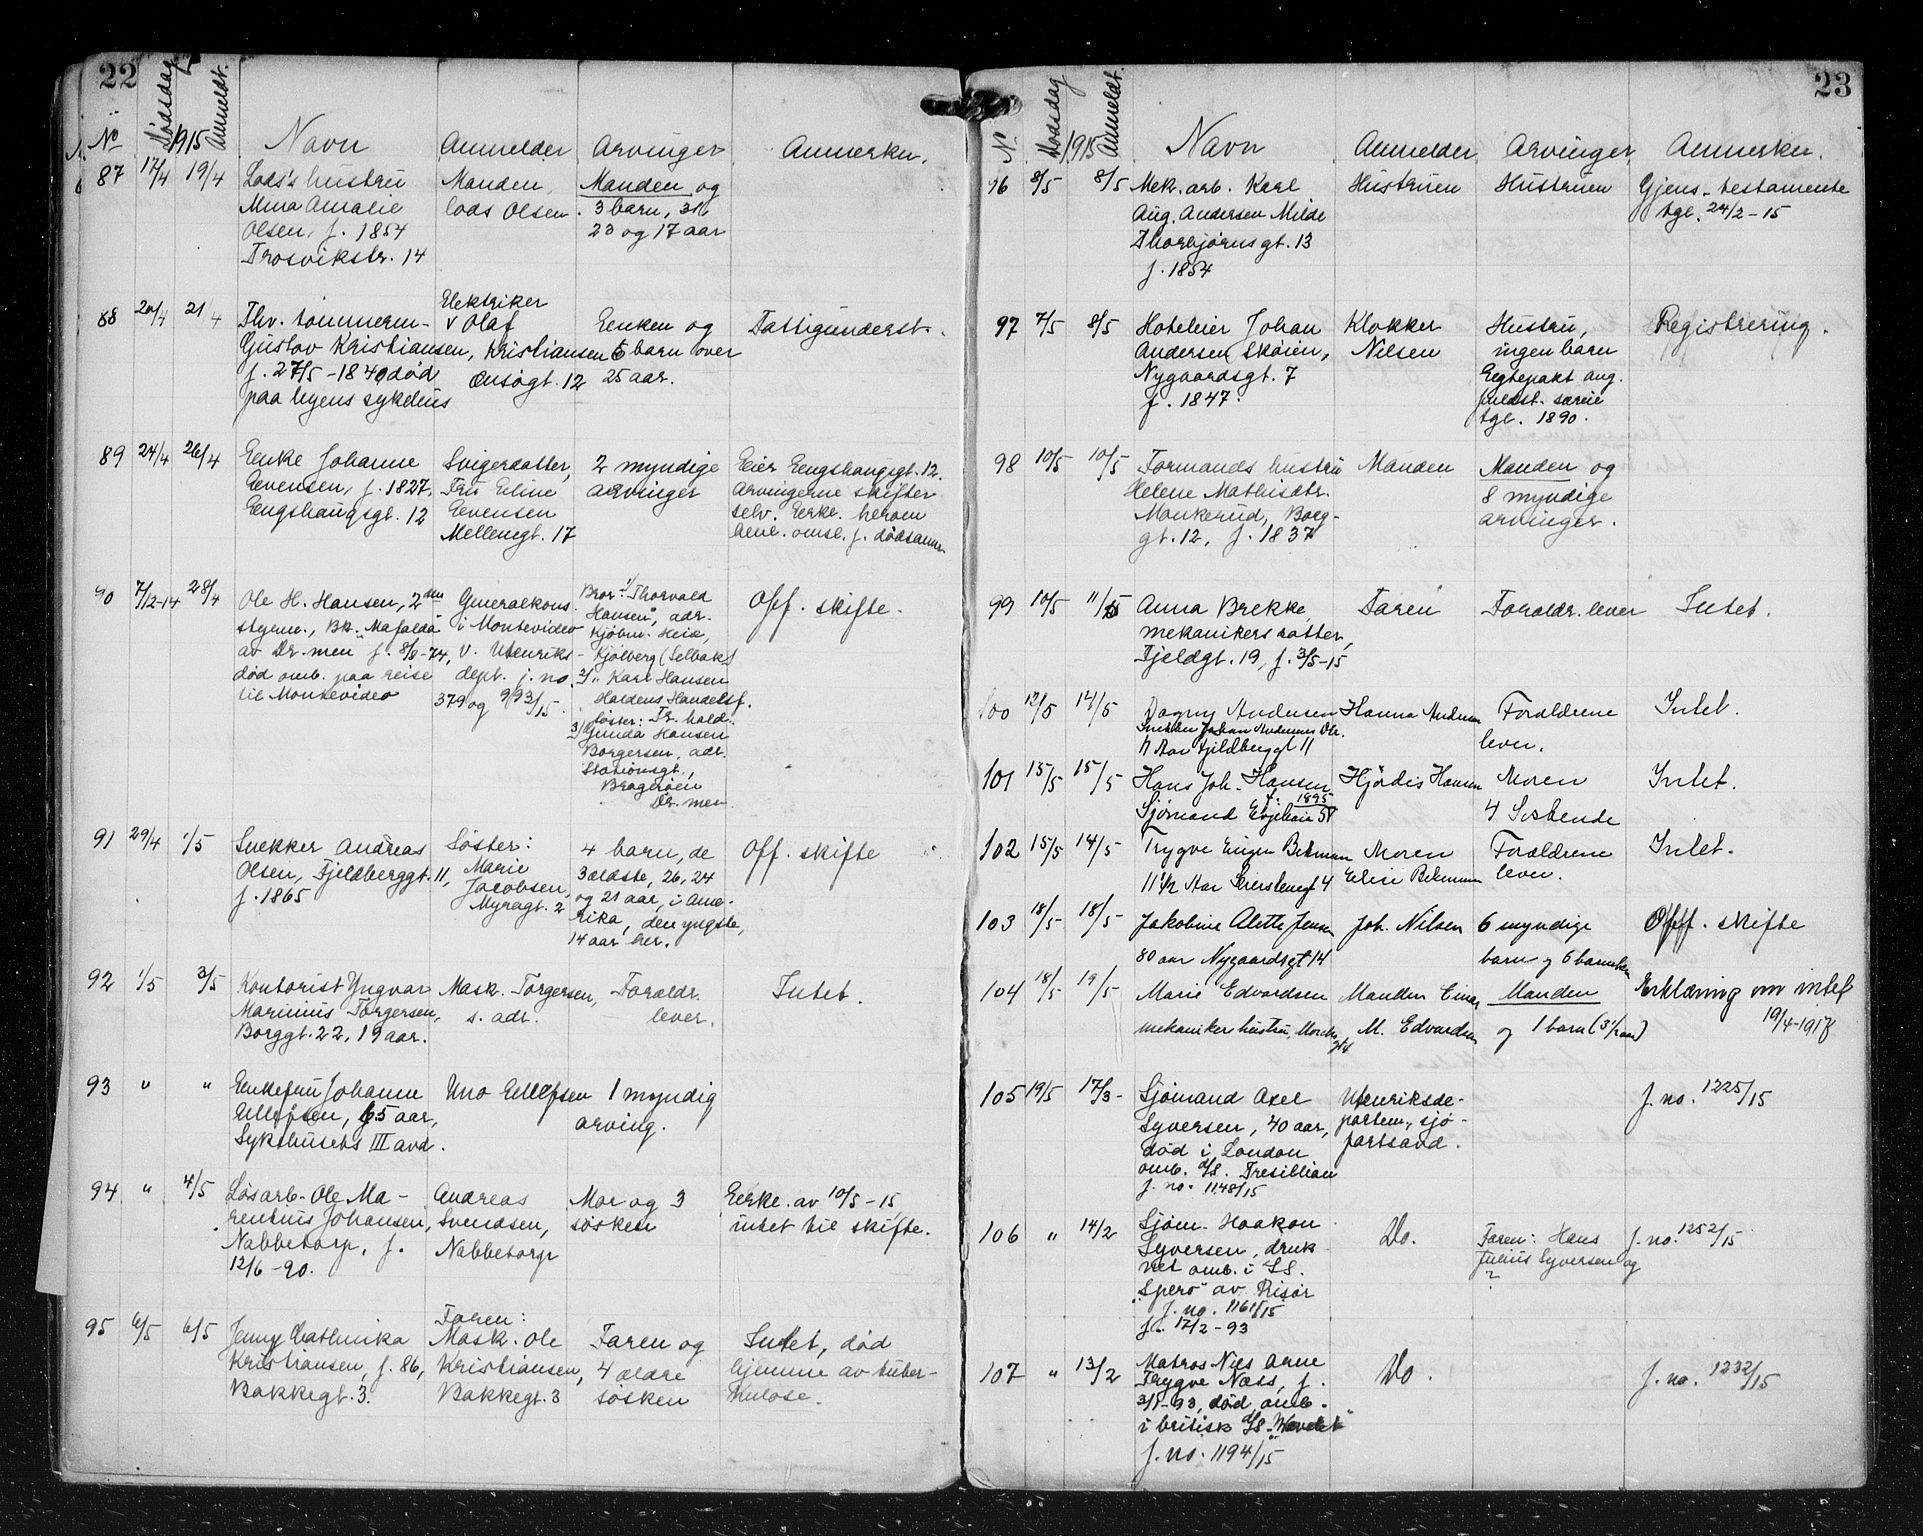 22
No
Dødsdag
1915
Anmeldt.
Navn
Anmelder
Arvinger
Anmerkn.
87 17/4 19/4 Lods's hustru Manden, Manden og
Mina Amalie lods Olsen. 3 barn, 31,
Olsen, f. 1854 23 og 17 aar
Trosvikstr. 14
Elektriker
88 20/4 21/4 Fhv. tømmerm- v Olaf Enken og Fattigunderst.
Gustav Kristiansen, Kristiansen 5 barn over
f. 27/5-1840, død Onsøgt. 12 25 aar.
paa byens sykehus
89 24/4 26/4 Enke Johanne Svigerdatter, 2 myndige Eier Engehaugsgt. 12.
Evensen, f. 1827, Fru Eline arvinger Arvingerne skifter
Engehaugsgt. 12 Evensen selv. Erkl. herom
Mellemgt. 17 omsl. f. dødsanm.
90 7/12-14 28/4 Ole H. Hansen, 2den Generalkons. Bror: 1/ Thorvald Off. skifte.
styrm., Bk. "Mafalda" i Montevideo Hansen, adr.
av Dr.men f. 8/8-74, v. Utenriks- Kjøbm. Heie,
død omb. paa reise dept. j. no. Kjølberg (Selbak)
til Montevideo 379 og 993/15. 2/ Karl Hansen
Haldens Handelsf.
søster: Fr. hald.
3/ Gunda Hansen
Borgersen, adr.
Stationsgt.,
Bragerøen
Dr.men.
91 29/4 1/5 Snekker Andreas Søster: 4 barn, de Off. skifte
Olsen, Fjeldberggt. 11, Marie 3 ældste, 26, 24
f. 1865 Jacobsen, og 21 aar, i Ame-
Myragt. 2 rika, den yngste,
14 aar her.
92 1/5 3/5 Kontorist Yngvar Mask. Torgersen, Forældr. Intet.
Marinius Torgersen, s. adr. lever.
Borggt. 22, 19 aar.
93 " " Enkefru Johanne Uno Ellefsen 1 myndig
Ellefsen, 65 aar, arving.
Sykehusets III avd.
94 " 4/5 Løsarb. Ole Ma- Andreas Mor og 3 Erkl. av 10/5-15,
rentius Johansen, Svendsen, søsken intet til skifte.
Nabbetorp, f. Nabbetorp
12/6-90.
Faren:
95 6/5 6/5 Jenny Cathinka Mask. Ole Faren og Intet, død
Kristiansen, f. 86, Kristiansen, 4 ældre hjemme av tuber-
Bakkegt. 3. Bakkegt. 3 søsken kulose.
23
No
Dødsdag
1915
Anmeldt.
Navn
Anmelder
Arvinger
Anmerkn.
96 8/5 8/5 Mek. arb. Karl Hustruen Hustruen Gjens. testamente
Aug. Andersen Milde tgl. 24/2-15
Thorbjørnsgt. 13
f. 1854
97 7/5 8/5 Hoteleier Johan Klokker Hustru, Registrering.
Andersen Skøien, Nilsen ingen barn
Nygaardsgt. 7 Egtepakt ang.
f. 1847. fuldst. særeie
tgl. 1890.
98 10/5 10/5 Formands hustru Manden Manden og
Helene Mathisdtr. 8 myndige
Monkerud, Borg- arvinger.
gt. 12, f. 1837
99 10/5 11/5 Anna Brekke, Faren Forældr. lever Intet.
mekanikers datter,
Fjeldgt. 19, f. 3/5-15
100 12/5 14/5 Dagny Andersen Hanna Andersen Forældrene Intet.
Snekker Johan Andersens Dtr. lever.
11 Aar Fjeldberggt 11
101 13/5 15/5 Hans Joh. Hansen Hjørdis Hansen Moren Intet.
f: 1895
Sjømand Evjebein 58 4 Søskende
102 15/5 14/5 Trygve Eugen Bekman Moren Forældrene Intet.
11 1/2 Aar 4 Elise Bekman lever.
103 18/5 18/5 Jakobine Alette Jensen Joh. Nilsen 6 myndige Off. skifte
80 aar Nygaardsgt 14 barn og 6 barnebarn
104 18/5 19/5 Marie Edvardsen Manden Einar Manden Erklæring om intet
mekaniker hustru, M. Edvardsen og 1 barn (3 1/2 aar) 19/4-1917
105 19/5 17/3- Sjømand Axel Utenriksde- J. no. 1225/15
Syversen, 40 aar, partem., sjø-
død i London fartsavd.
omb. D/S. Tresillian
J. no. 1148/15
106 " 14/2 Sjøm. Haakon Do. Faren: Hans J. no. 1252/15
Syversen, druk- Julius Syversen og
net omb. i SS. ?
"Spero" av Risør
J. no. 1161/15
f. 17/2-93
107 " 13/2 Matros Nils Arne Do. J. no. 1232/15
Trygve Næss, f.
3/8-93, død omb.
i britisk D/S. "Wavelet"
J. no. 1194/15